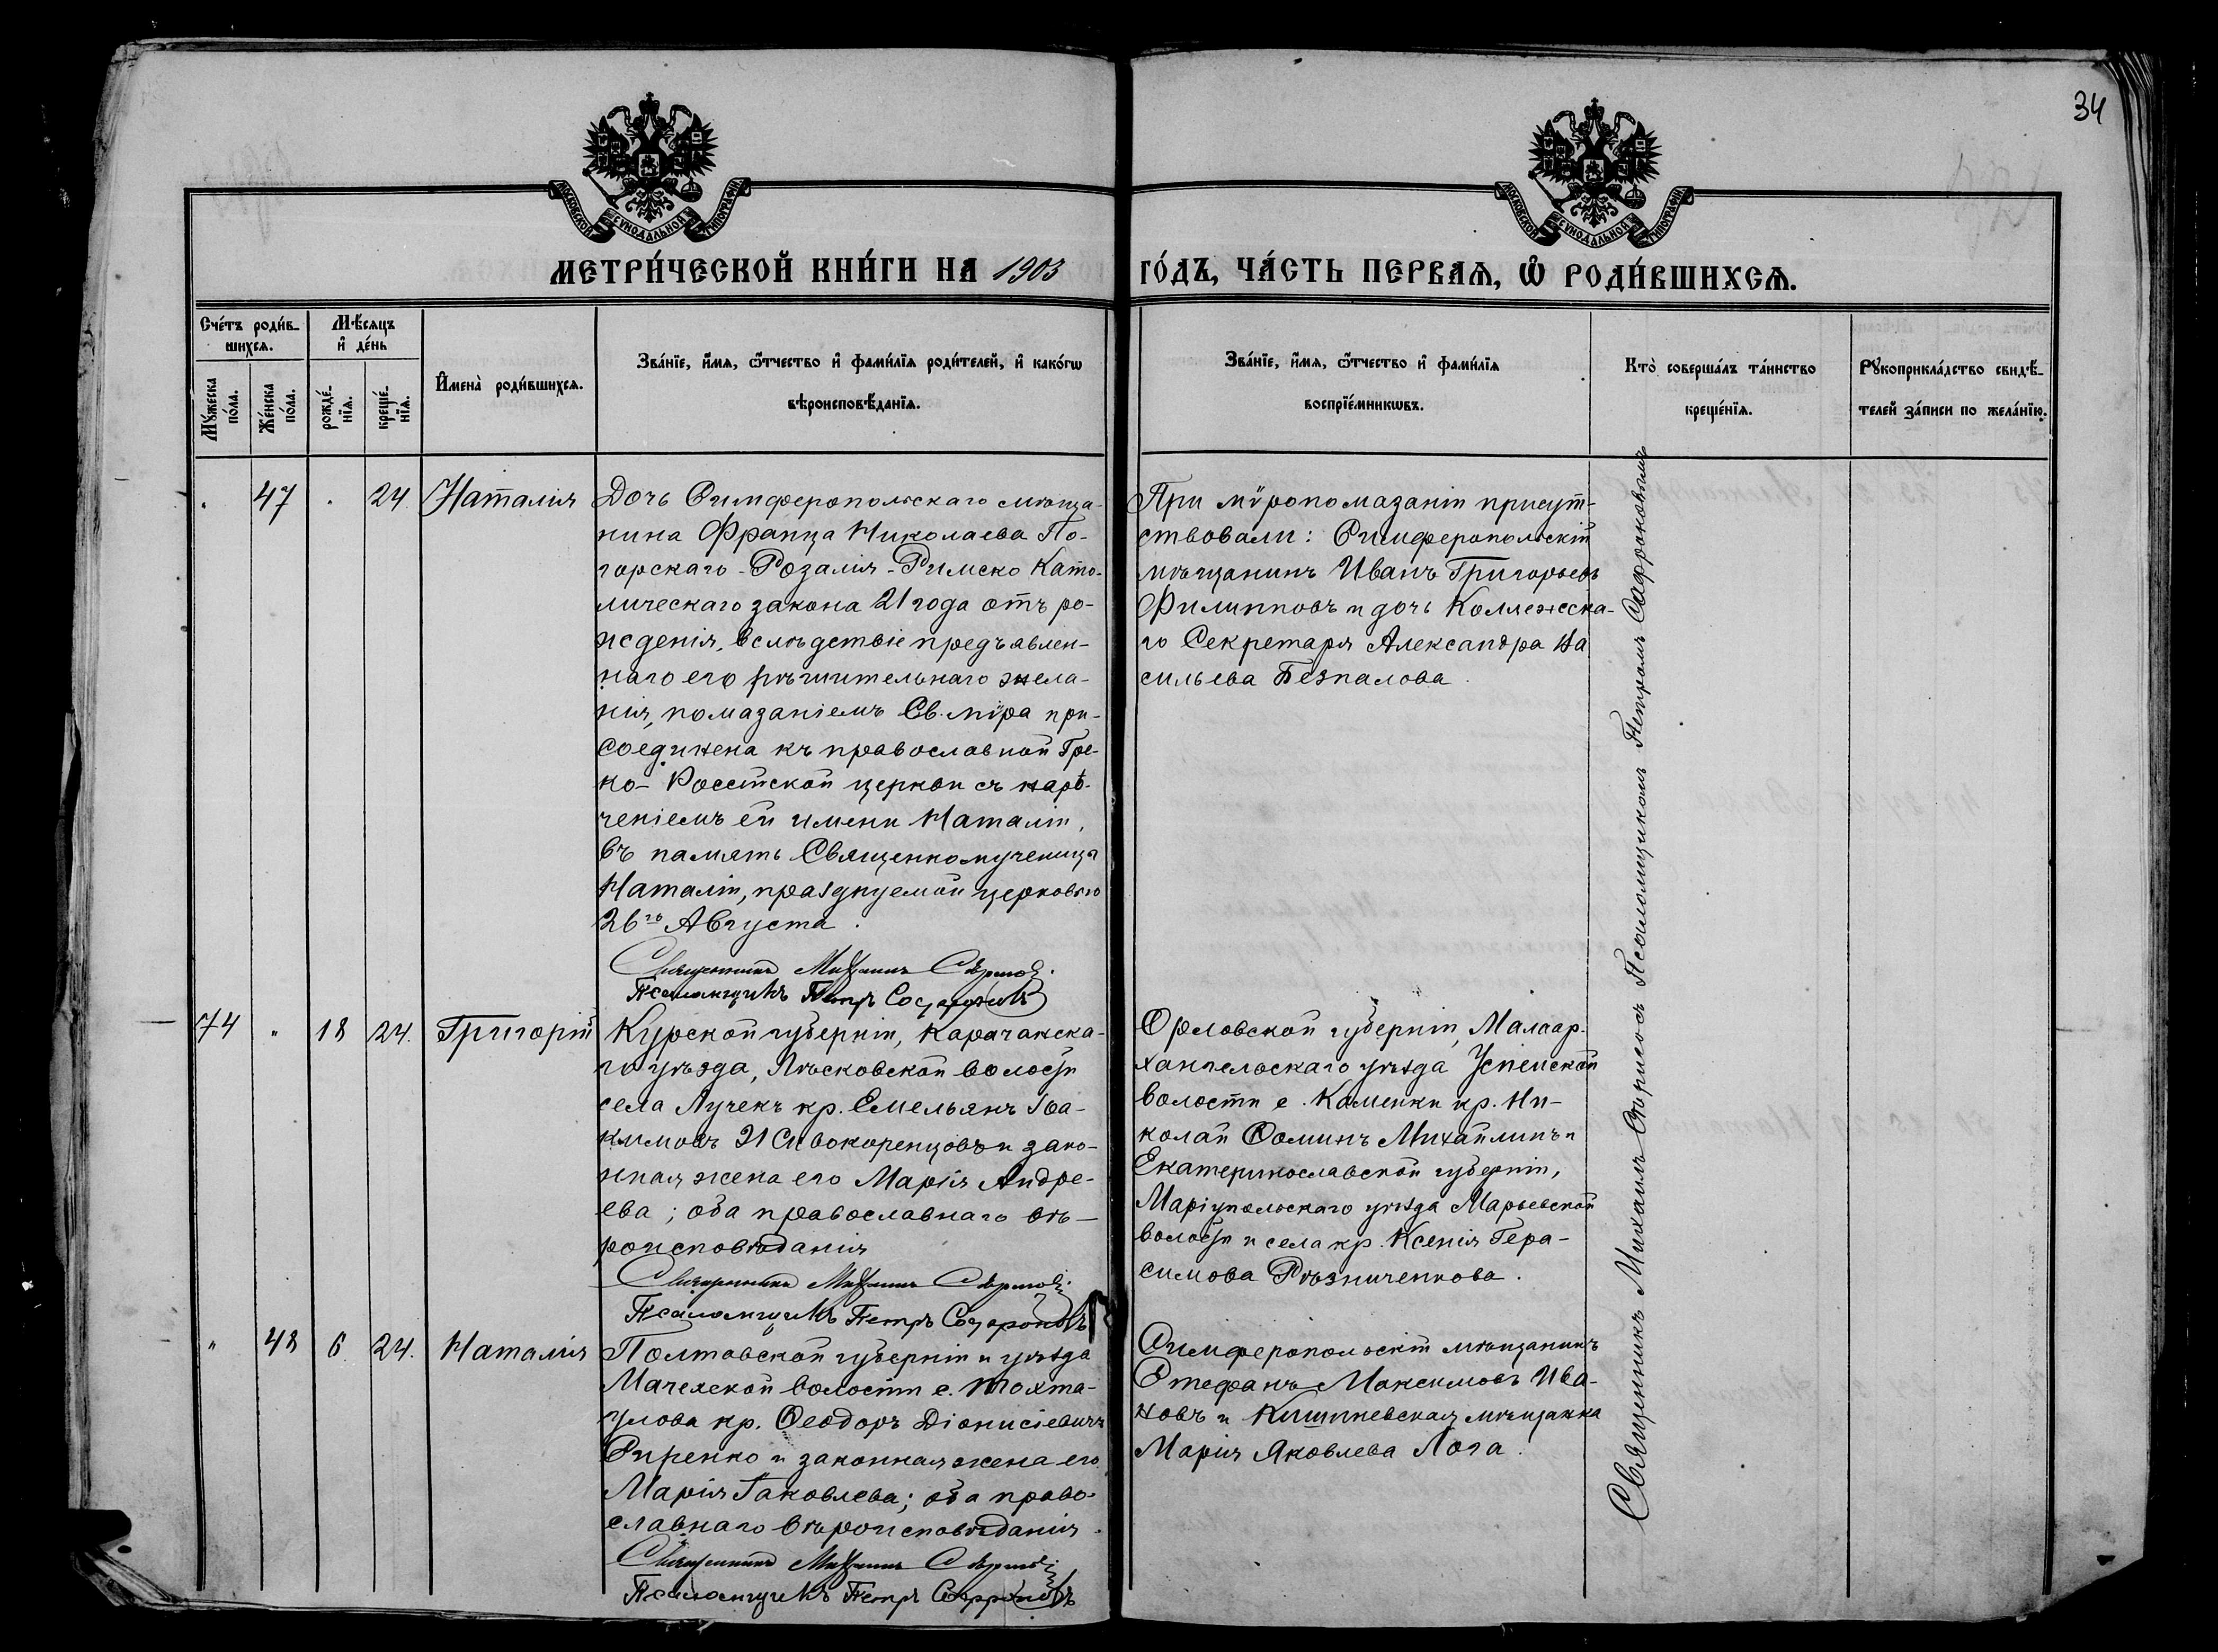 34
МОСКОВСКОЙ СѴНОДАЛЬНОЙ ТИПОГРАФІИ
МОСКОВСКОЙ СѴНОДАЛЬНОЙ ТИПОГРАФІИ
МЕТРИ́ЧЕСКОЙ КНИ́ГИ НА 1903 ГО́ДЪ, ЧА́СТЬ ПЕРВАѦ, Ѡ҆ РОДИ́ВШИХСѦ.
Сче́тъ роди́в-
шихсѧ.
Мѣ́сяцъ
и҆ де́нь
Му́жеска
по́ла.
Же́нска
по́ла.
рожде́-
нїѧ.
креще́-
нїѧ.
И҆мена̀ роди́вшихсѧ.
Зва́нїе, и҆́мѧ, ѻ҆́тчество и҆ фами́лїѧ роди́телей, и҆ како́гѡ
вѣроисповѣ́данїѧ.
Зва́нїе, и҆́мѧ, ѻ҆́тчество и҆ фами́лїѧ
воспрїе́мникѡвъ.
Кто̀ соверша́лъ та́инство
креще́нїѧ.
Рꙋкоприкла́дство свидѣ́-
телей за́писи по жела́нїю.
" 47 " 24 Наталія
Дочь Симферопольскаго мѣща-
нина Франца Николаева По-
горскаго - Розалія - Римско Като-
лическаго закона 21 года отъ ро-
жденія, вслѣдствіе предъявлен-
наго его рѣшительнаго жела-
нія, помазаніемъ Св. мѵра при-
соединена къ православной Гре-
ко- Россійской церкви съ наре-
ченіемъ ей имени Наталіи,
въ память Священномученицы
Наталіи, празднуемой церковью
26го Августа.
Священникъ Михаилъ
Псаломщикъ Петръ Сафроновъ
При мѵропомазаніи присут-
ствовали: Симферопольскій
мѣщанинъ Иванъ Григорьевъ
Филипповъ и дочь Коллежска-
го Секретаря Александра Ва
сильева Безпалова.
74 " 18 24. Григорій
Курской губерніи, Карачанска-
го уѣзда, Пѣсковской волости
села Лучекъ кр. Емельянъ Іоа-
кимовъ Сивокоренцовъ и зако-
нная жена его Марія Андре-
ева; оба православнаго вѣ-
роисповѣданія
Священникъ Михаилъ
Псаломщикъ Петръ Сафроновъ
Орловской губерніи, Малоар-
хангельскаго уѣзда Успенской
волости с. Каменки кр. Ни-
колай Ѳоминъ Михайлинъ и
Екатеринославской губерніи,
Маріупольскаго уѣзда Марьевской
волости и села кр. Ксенія Гера-
симова Рѣзниченкова.
" 48 6 24. Наталія
Полтавской губерніи и уѣзда
Мачехской волости с. Тохта-
улова кр. Ѳеодоръ Діонисіевичъ
Сиренко и законная жена его
Марія Іаковлева; оба право-
славнаго вѣроисповѣданія.
Священникъ Михаилъ
Псаломщикъ Петръ Сафроновъ
Симферопольскій мѣщанинъ
Стефанъ Максимовъ Ива-
новъ и Кишиневская мѣщанка
Марія Яковлева Лога.
Священникъ Михаилъ съ Псаломщикомъ Петромъ Сафроновымъ